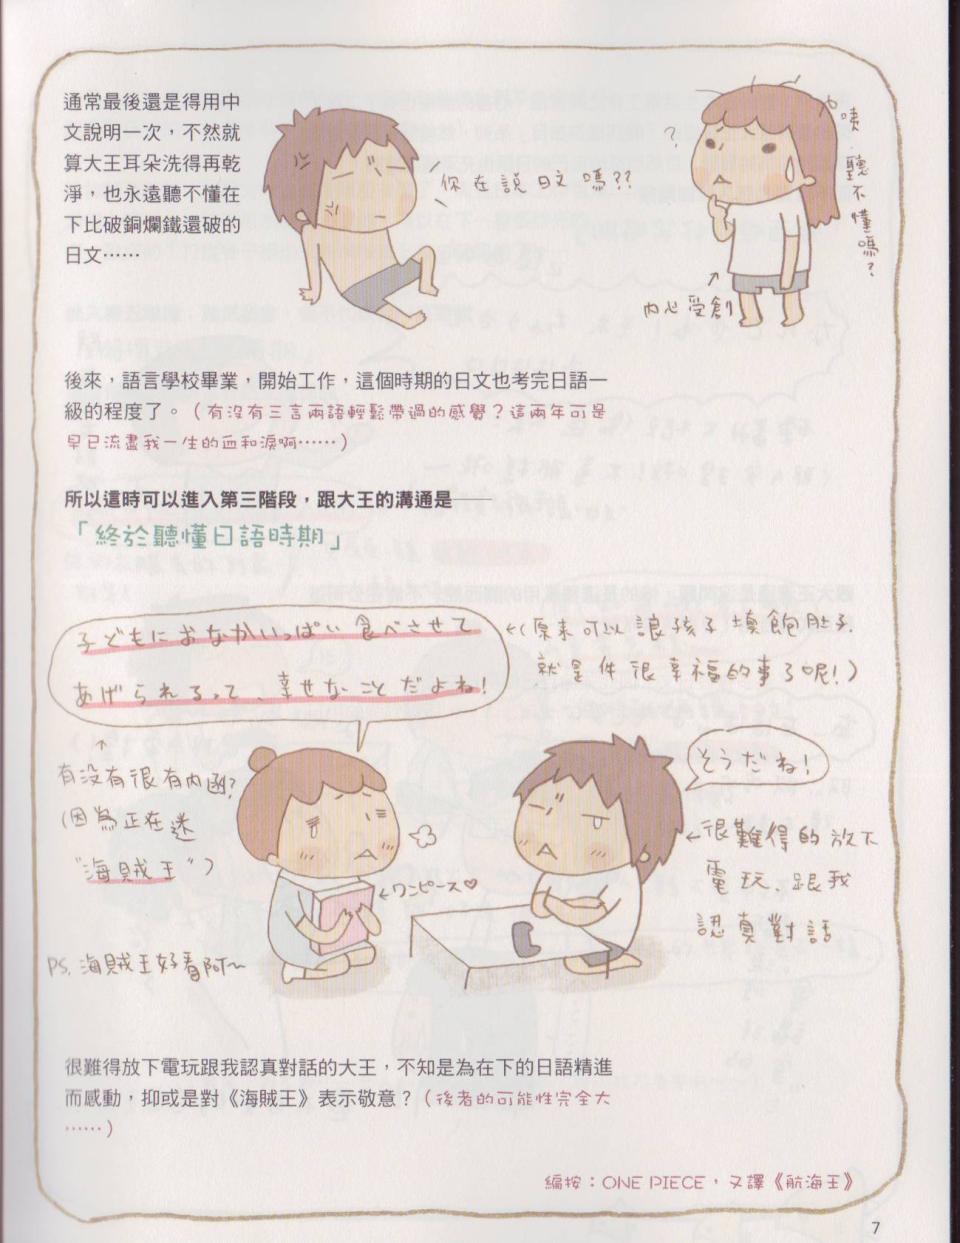 通常最後還是得用中
文說明一次，不然就
算大王耳朵洗得再乾
淨，也永遠聽不懂在
下比破銅爛鐵還破的
日文⋯⋯
你在說日文嗎??
?
咦.聽不懂嗎?
內心受創
後來，語言學校畢業，開始工作，這個時期的日文也考完日語一
級的程度了。（有沒有三言兩語輕鬆帶過的感覺？這兩年可是
早已流盡我一生的血和淚啊⋯⋯）
所以這時可以進入第三階段，跟大王的溝通是——
「終於聽懂日語時期」
子どもにおなかいっぱい食べさせて
あげられるって、幸せなことだよね!
(原來可以讓孩子填飽肚子.
就是件很幸福的事了呢!)
有沒有很有內函?
(因為正在迷
"海賊王")
そうだね!
很難得的放下
電玩、跟我
認真對話
ワンピース♡
PS.海賊王好看阿~
很難得放下電玩跟我認真對話的大王，不知是為在下的日語精進
而感動，抑或是對《海賊王》表示敬意？（後者的可能性完全大
⋯⋯）
編按：ONE PIECE，又譯《航海王》
7